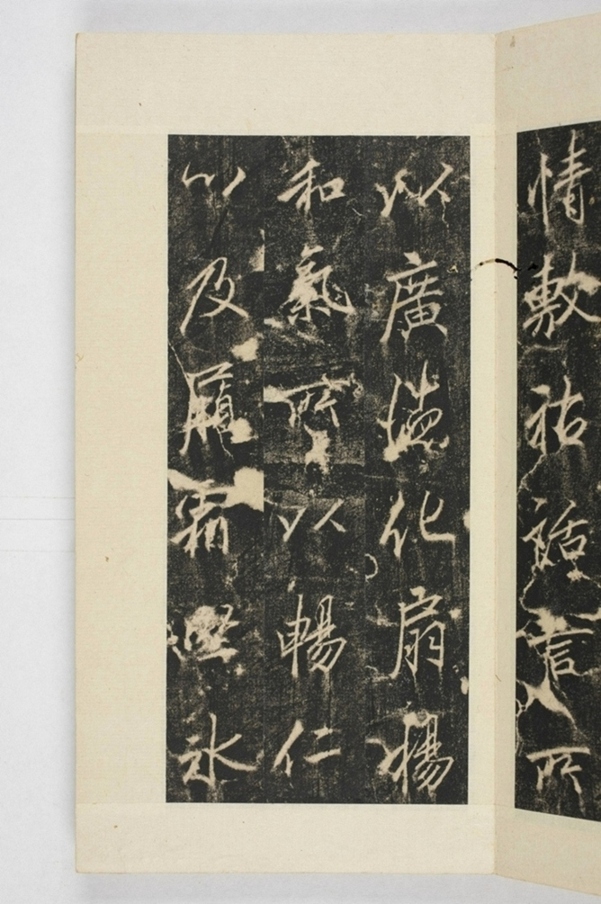 情敷祐話言所
以廣德化扇楊
和氣所以暢仁
以及履霜堅氷